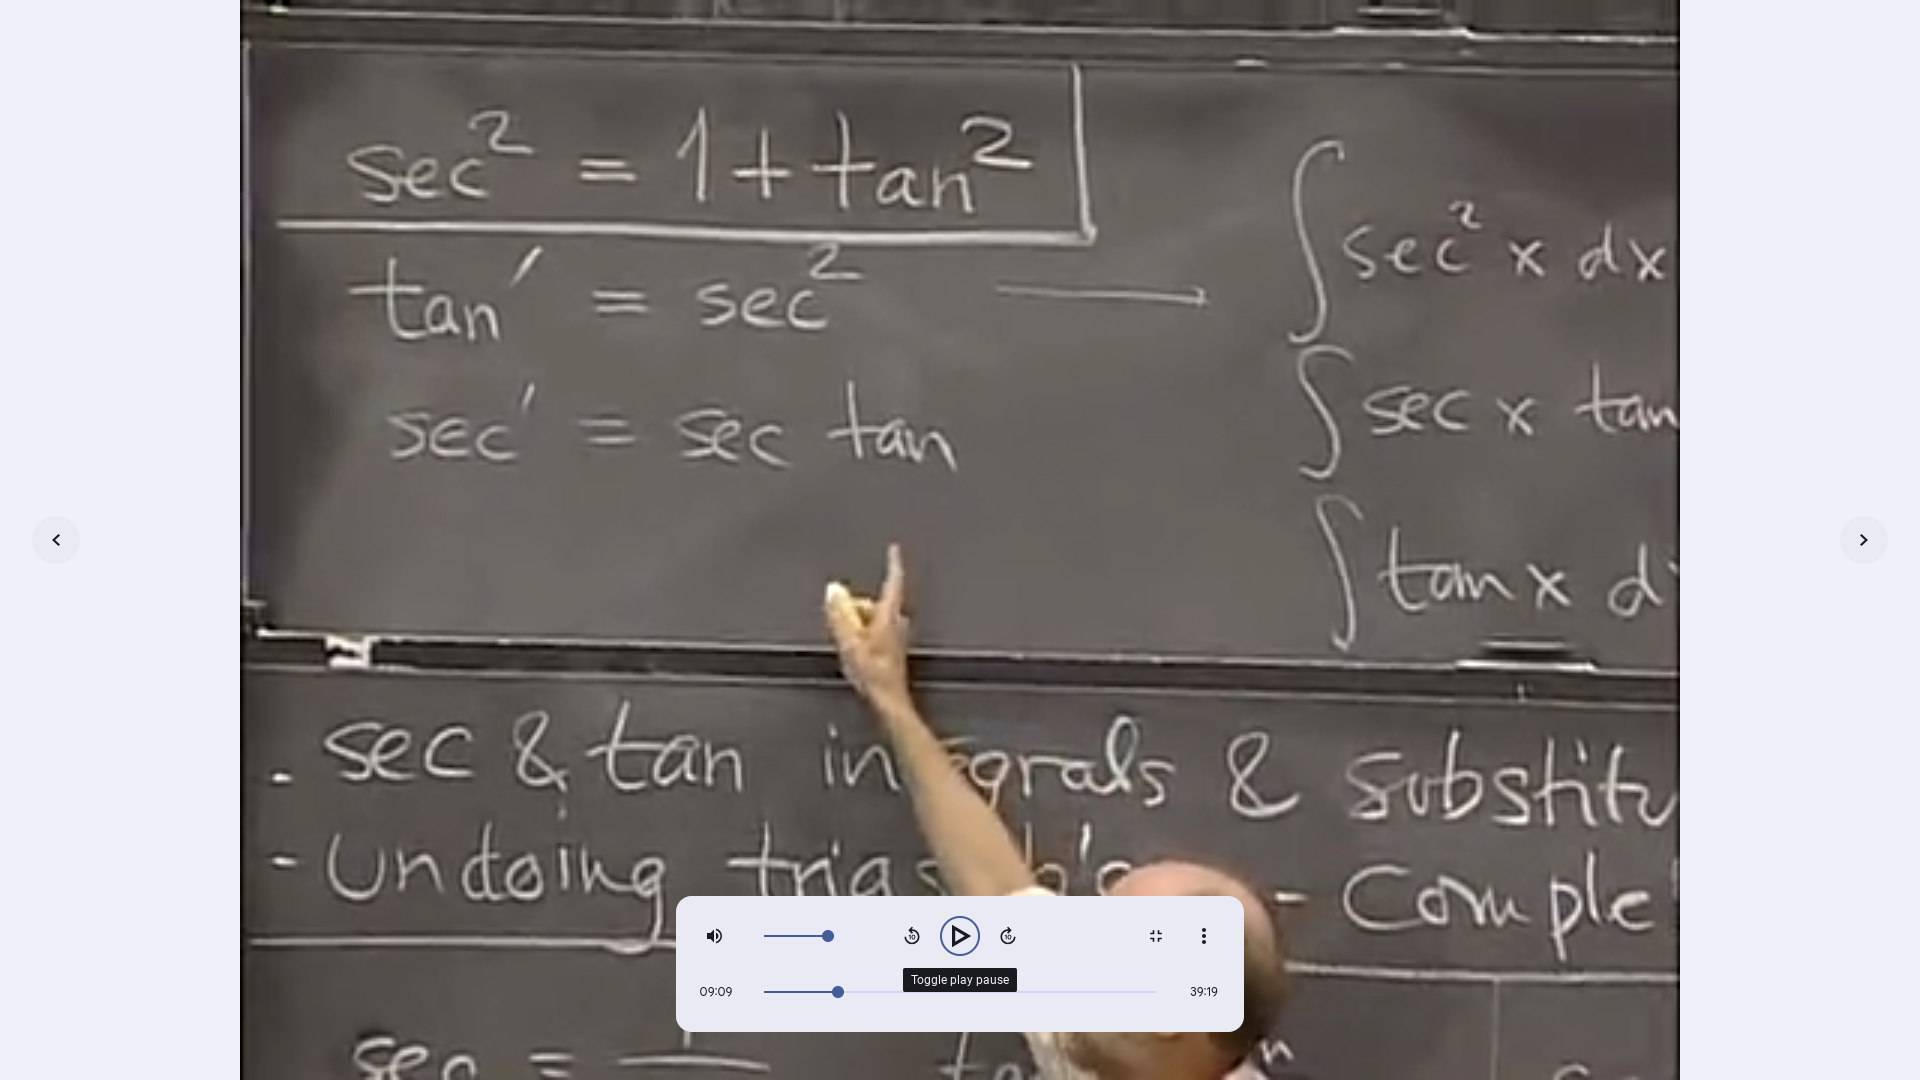 sec² = 1 + tan²
tan′ = sec² → ∫ sec² x dx
sec′ = sec tan
∫ sec x tan
∫ tan x d
- sec & tan integrals & substitu
- Undoing trig - Comple
sec = 1
Toggle play pause
09:09
39:19